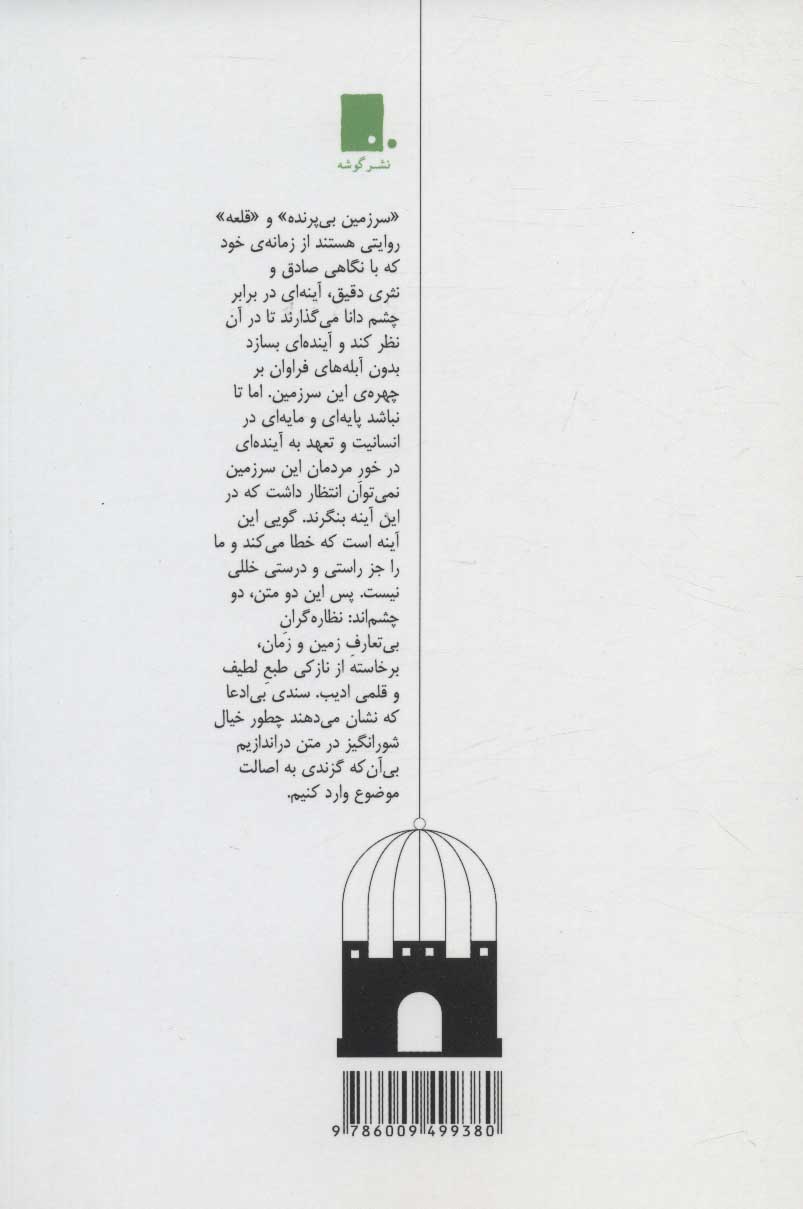 نشر گوشه
«سرزمین بی‌پرنده» و «قلعه»
روایتی هستند از زمانه‌ی خود
که با نگاهی صادق و
نثری دقیق، آینه‌ای در برابر
چشم دانا می‌گذارند تا در آن
نظر کند و آینده‌ای بسازد
بدون آبله‌های فراوان بر
چهره‌ی این سرزمین. اما تا
نباشد پایه‌ای و مایه‌ای در
انسانیت و تعهد به آینده‌ای
در خور مردمان این سرزمین
نمی‌توان انتظار داشت که در
این آینه بنگرند. گویی این
آینه است که خطا می‌کند و ما
را جز راستی و درستی خللی
نیست. پس این دو متن، دو
چشم‌اند: نظاره‌گرانِ
بی‌تعارفِ زمین و زمان،
برخاسته از نازکی طبعِ لطیف
و قلمی ادیب. سندی بی‌ادعا
که نشان می‌دهند چطور خیال
شورانگیز در متن دراندازیم
بی‌آن‌که گزندی به اصالت
موضوع وارد کنیم.
9 786009 499380